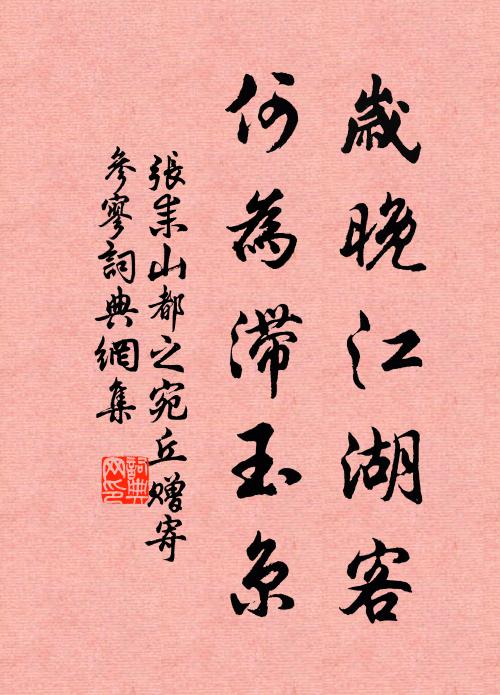 歲晚江湖客
何為滯玉京
張耒山都之宛丘贈寄
參寥詞典網集
詞典網印